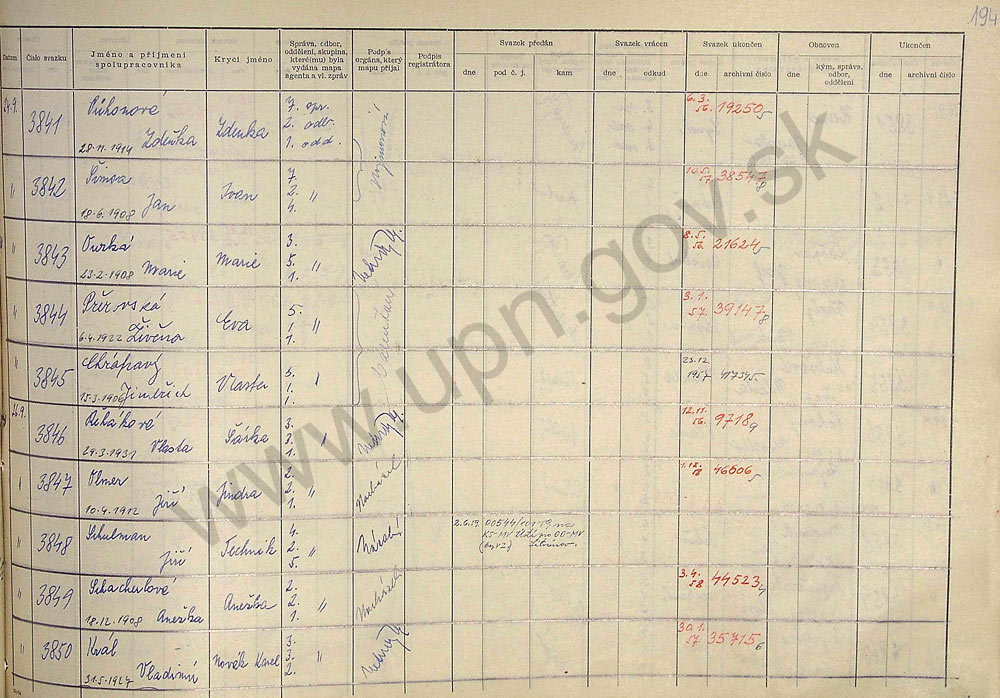 194
Datum Číslo svazku Jméno a příjmení spolupracovníka Krycí jméno Správa, odbor, oddělení, skupina, které(mu) byla vydána mapa agenta a vl. zpráv Podpis orgána, který mapu přijal Podpis registrátora Svazek předán Svazek vrácen Svazek ukončen Obnoven Ukončen
dne pod č. j. kam dne odkud dne archivní číslo dne kým, správa, odbor, oddělení dne archivní číslo
24.9. 3841 7. spr. 6.3. 56. 19250/5
Zdeňka Zdenka 2. odb.
28.11.1914 1. odd.
" 3842 Šimsa 7. 10.5. 57. 38547/8
Jan Ivan 2. "
18.6.1908 4.
" 3843 3. 8.5. 56. 21624/5
23.2.1908 Marie Marie 5. "
1.
" 3844 Přerovská 5. 3.1. 57. 39147/8
6.4.1922 Eva 1. "
1.
" 3845 5. 23.12. 1957
15.3.1906 Jindřich Vlasta 1. "
1.
26.9. 3846 Řeháková 3. 12.11. 56. 9718/9
29.3.1931 Vlasta Šárka 2. "
1.
" 3847 Olmer 2. 1.12. 58 46606/5
10.4.1912 Jiří Jindra 2. "
1.
" 3848 Schulman 4. 2.6.59.
Jiří Technik 2. "
5.
" 3849 2. 3.4. 58 44523/7
18.12.1908 Anežka Anežka 2. "
1.
" 3850 Král 3. 30.1. 57. 35715/6
31.5.1927 Vladimír Novák Karel 3. "
2.
www.upn.gov.sk